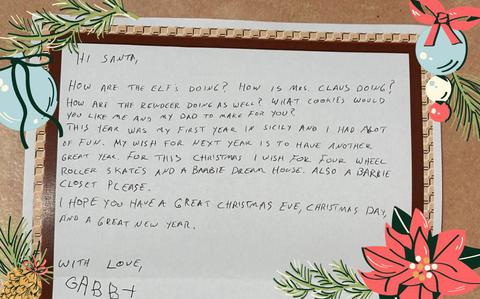 HI SANTA,
HOW ARE THE ELFS DOING? HOW IS MRS. CLAUS DOING?
HOW ARE THE REINDEER DOING AS WELL? WHAT COOKIES WOULD
YOU LIKE ME AND MY DAD TO MAKE FOR YOU?
THIS YEAR WAS MY FIRST YEAR IN SICILY AND I HAD ALOT
OF FUN. MY WISH FOR NEXT YEAR IS TO HAVE ANOTHER
GREAT YEAR. FOR THIS CHRISTMAS I WISH FOR FOUR WHEEL
ROLLER SKATES AND A BARBIE DREAM HOUSE. ALSO A BARBIE
CLOSET PLEASE.
I HOPE YOU HAVE A GREAT CHRISTMAS EVE, CHRISTMAS DAY,
AND A GREAT NEW YEAR.
WITH LOVE,